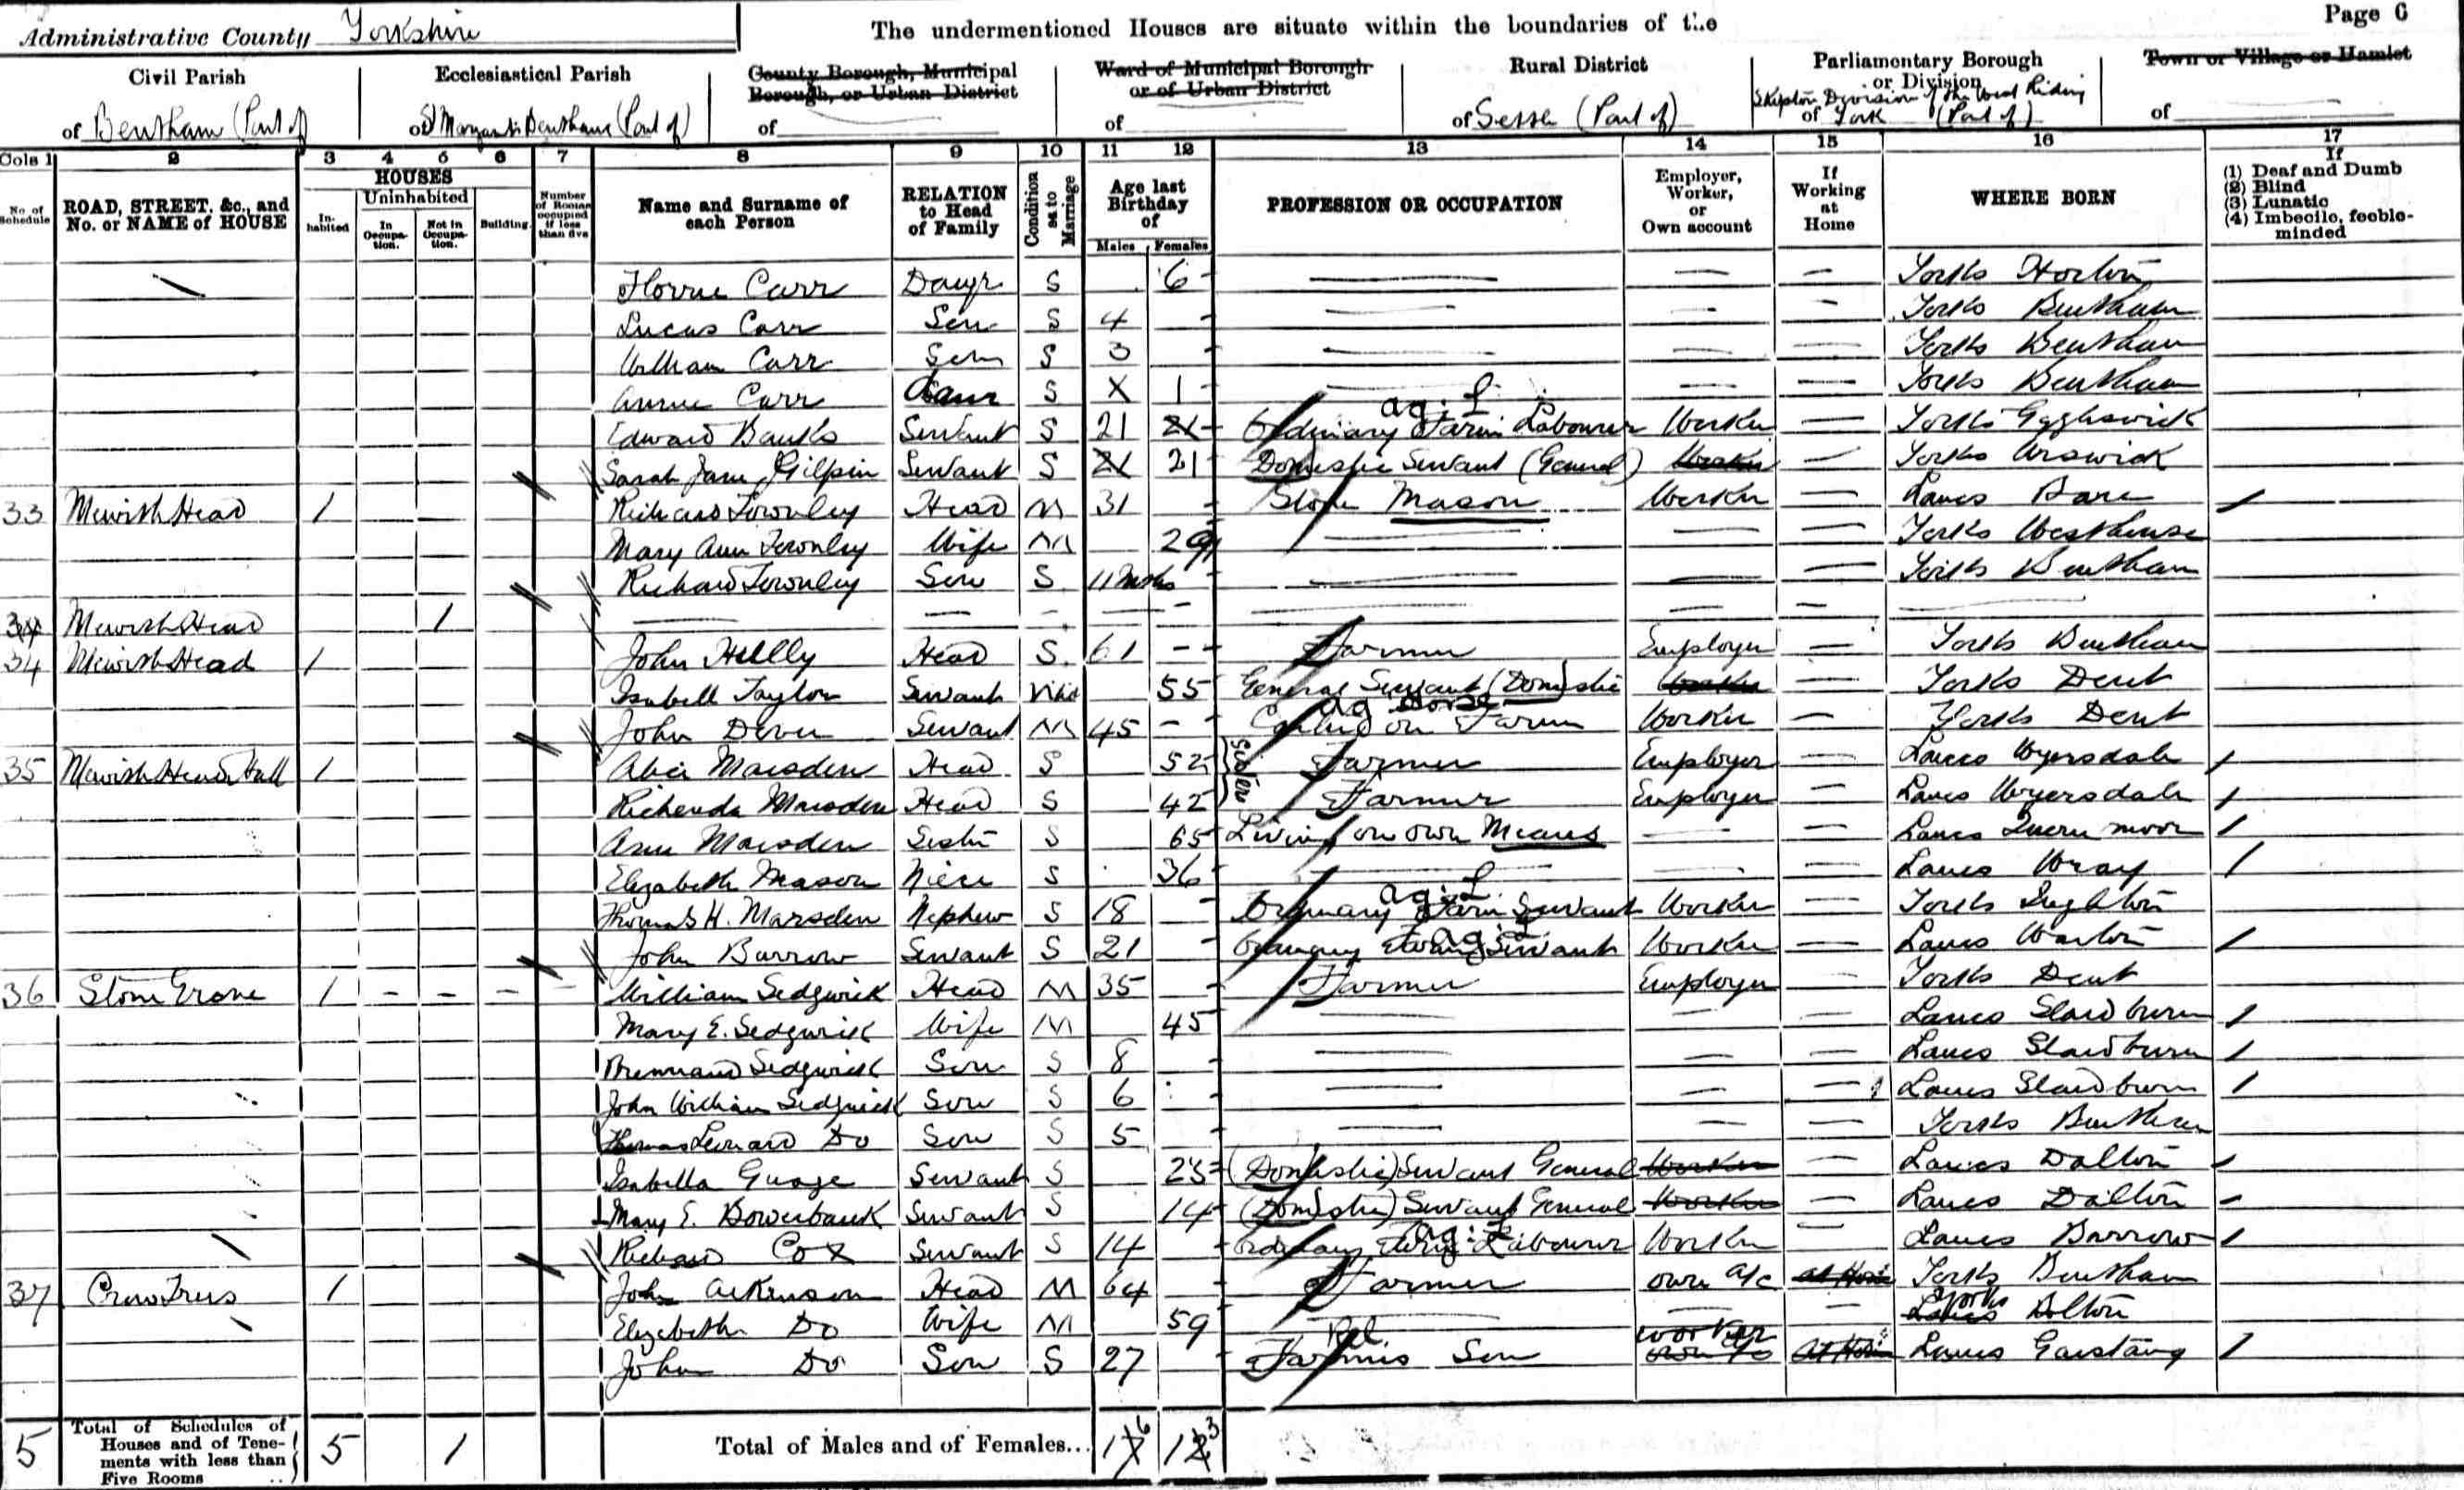 Page 6
Administrative County Yorkshire
The undermentioned Houses are situate within the boundaries of the
Civil Parish
of Bentham (Part of)
Ecclesiastical Parish
of St Margarets Bentham (Part of)
County Borough, Municipal Borough, or Urban District
of
Ward of Municipal Borough or of Urban District
of
Rural District
of Settle (Part of)
Parliamentary Borough or Division
of Skipton Division of the West Riding York (Part of)
Town or Village or Hamlet
of
Cols 1 2 3 4 5 6 7 8 9 10 11 12 13 14 15 16 17
No. of Schedule
ROAD, STREET, &c., and No. or NAME of HOUSE
HOUSES
Inhabited
Uninhabited
In Occupation.
Not in Occupation.
Building.
Number of Rooms occupied if less than five
Name and Surname of each Person
RELATION to Head of Family
Condition as to Marriage
Age last Birthday of
Males Females
PROFESSION OR OCCUPATION
Employer, Worker, or Own account
If Working at Home
WHERE BORN
If
(1) Deaf and Dumb
(2) Blind
(3) Lunatic
(4) Imbecile, feeble-minded
Florrie Carr Daur S 6 Yorks Horton
Lucas Carr Son S 4 Yorks Bentham
William Carr Son S 3 Yorks Bentham
Annie Carr Daur S X 1 Yorks Bentham
ag: L
Edward Banks Servant S 21 21 Ordinary Farm Labourer Worker Yorks
Sarah Jane Gilpin Servant S 21 21 Domestic Servant (General) Worker Yorks
33 Mewith Head 1 Richard Townley Head M 31 Mason Worker Lancs Bare
Mary Ann Townley Wife M 29 Yorks Westhouse
Richard Townley Son S 11 Mnths Yorks Bentham
34 Mewith Head 1
34 Mewith Head 1 John Head S 61 Farmer Employer Yorks Bentham
Isabell Taylor Servant Wid 55 General Servant (Domestic Worker Yorks Dent
ag Horse
John Servant M 45 on Farm Worker Yorks Dent
35 Mewith Head Hall 1 Alice Marsden Head S 52 Sisters Farmer Employer Lancs Wyersdale
Richenda Marsden Head S 42 Farmer Employer Lancs Wyersdale
Ann Marsden Sister S 65 Living on own Means Lancs Quernmoor
Elizabeth Mason Niece S 36 Lancs Wray
ag: L
Thomas H. Marsden Nephew S 18 Ordinary Farm Servant Worker Yorks Ingleton
ag: L
John Burrow Servant S 21 Ordinary Farm Servant Worker Lancs Warton
36 Stone Grove 1 - - - - William Sedgwick Head M 35 Farmer Employer Yorks Dent
Mary E. Sedgwick Wife M 45 Lancs Slaidburn
Brennand Sedgwick Son S 8 Lancs Slaidburn
John William Sedgwick Son S 6 Lancs Slaidburn
Thomas Leonard Do Son S 5 Yorks Bentham
Isabella Servant S 23 (Domestic) Servant General Worker Lancs Dalton
Mary E. Bowerbank Servant S 14 (Domestic) Servant General Worker Lancs Dalton
ag: L
Richard Cox Servant S 14 Ordinary Farm Labourer Worker Lancs Barrow
37 Crow Trees 1 John Atkinson Head M 64 Farmer own a/c at Home Yorks Bentham
Elizabeth Do Wife M 59 Lancs Yorks Dolton
Rel worker
John Do Son S 27 Farmers Son own a/c At Home Lancs Garstang
5 Total of Schedules of Houses and of Tenements with less than Five Rooms .. 5 1
Total of Males and of Females... 17 6 12 3